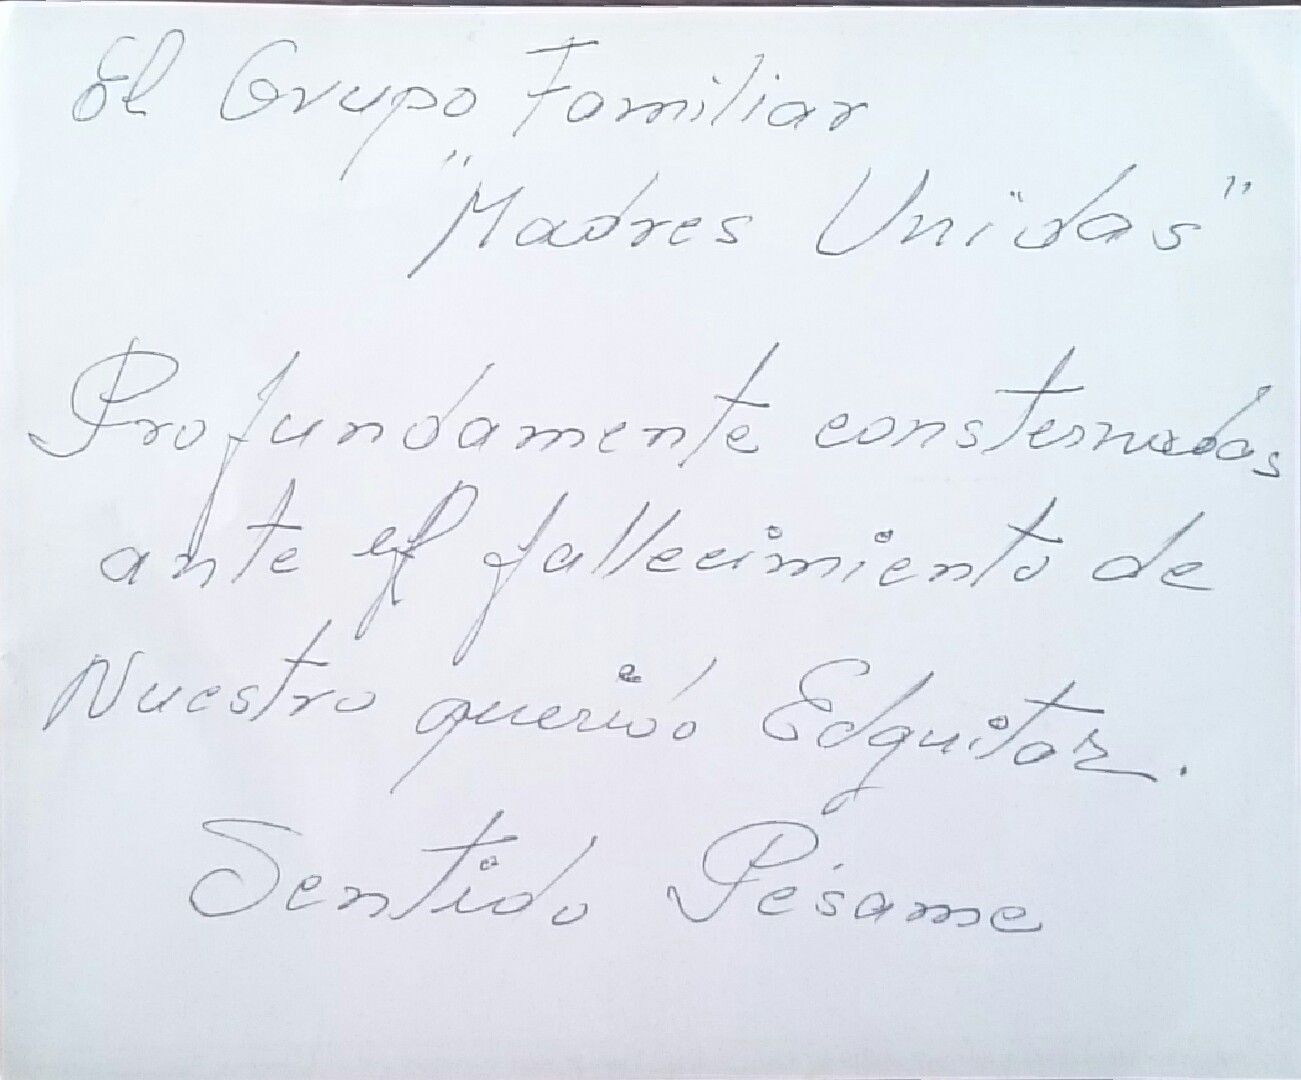 El Grupo Familiar
"Madres Unidas"
Profundamente consternados
ante el fallecimiento de
Nuestro querido Edguitar.
Sentido Pésame